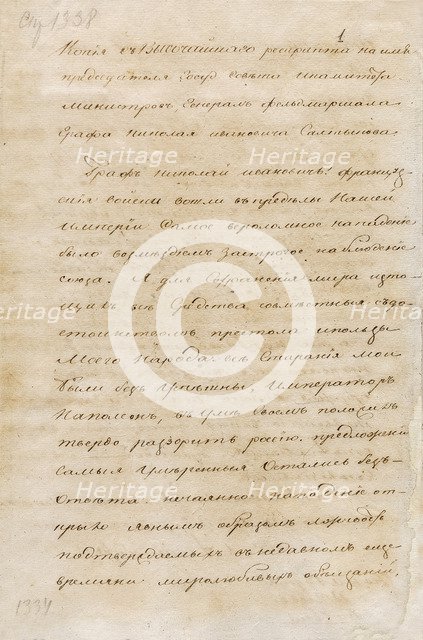 Сту 1338
1
Копія съ Высочайшаго рескрипта на имя
председателя Госуд. Совета и комитета
Министровъ Генералъ Фельдмаршала
Графа Николая Ивановича Салтыкова
Графъ Николай Ивановичь! Француз-
скія войски вошли въ пределы Нашей
Имперіи. Самое вероломное нападеніе
было возмездіемъ за строгое наблюденіе
союза. Я для сохраненія мира исто-
щилъ все средства совместныя съ до-
стоинствомъ престола и пользою
Моего Народа. Все старанія мои
были безъ успешны. Императоръ
Наполеонъ, въ уме своемъ положилъ
твердо разорить россію. предложенія
самыя умеренныя остались безъ-
ответа. нечаянное нападеніе от-
крыло явнымъ образомъ лживость
подтверждаемыхъ въ недавномъ еще
времени миролюбивыхъ обещаній,
1334
Heritage
Heritage
Heritage
Heritage
Heritage
Heritage
Heritage
©